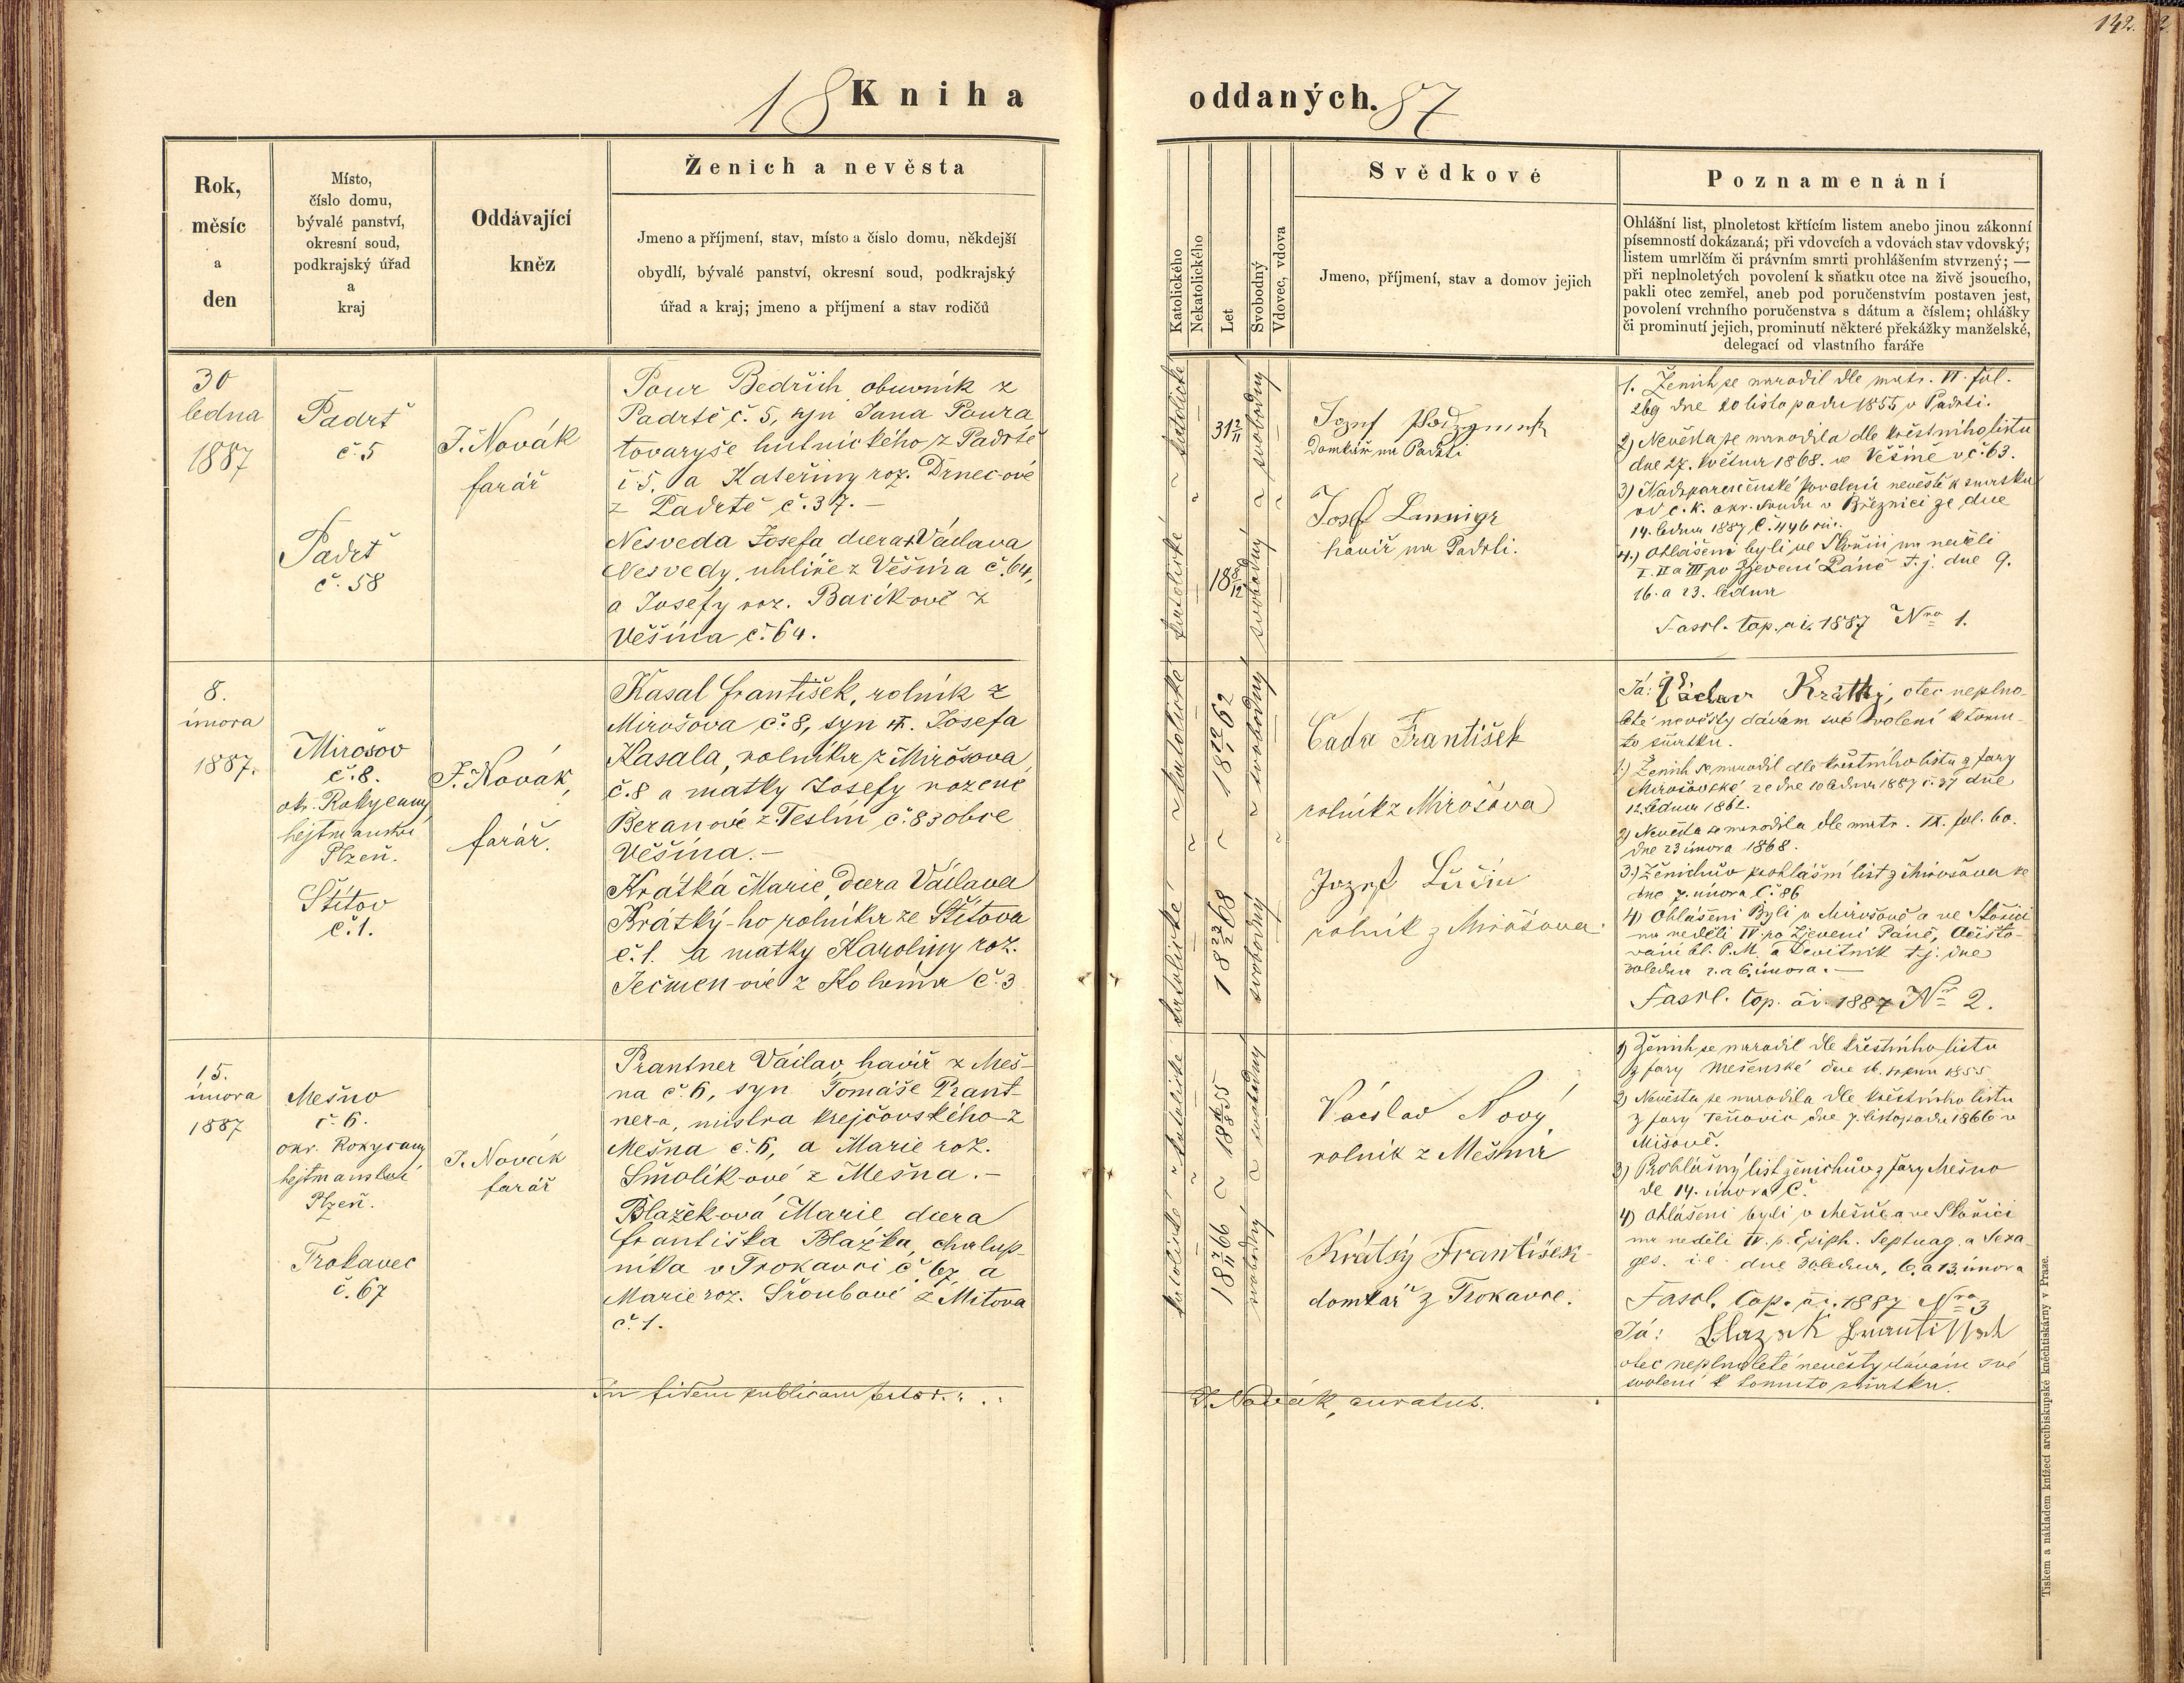 142.
18 Kniha oddaných. 87
Rok,
měsíc
a
den
Místo,
číslo domu,
bývalé panství,
okresní soud,
podkrajský úřad
a
kraj
Oddávající
kněz
Ženich a nevěsta
Jmeno a příjmení, stav, místo a číslo domu, někdejší
obydlí, bývalé panství, okresní soud, podkrajský
úřad a kraj; jmeno a příjmení a stav rodičů
Katolického
Nekatolického
Let
Svobodný
Vdovec, vdova
Svědkové
Jmeno, příjmení, stav a domov jejich
Poznamenání
Ohlášní list, plnoletost křtícím listem anebo jinou zákonní
písemností dokázaná; při vdovcích a vdovách stav vdovský;
listem umrlčím či právním smrti prohlášením stvrzený; —
při neplnoletých povolení k sňatku otce na živě jsoucího,
pakli otec zemřel, aneb pod poručenstvím postaven jest,
povolení vrchního poručenstva s dátum a číslem; ohlášky
či prominutí jejich, prominutí některé překážky manželské,
delegací od vlastního faráře
30
ledna
1887
Padrť
č. 5
Padrť
č. 58
J. Novák
farář
Pour Bedřich, obuvník z
Padrtě č. 5, syn Jana Poura
tovaryše hutnického z Padrtě
č 5. a Kateřiny roz. Drnecové
z Padrtě č. 37. —
Nesveda Josefa dcera + Václava
Nesvedy, uhlíře z Věšína č. 64,
a Josefy roz. Bacíkové z
Věšína č. 64.
katolické
katolické
31 2/11
18 8/12
svobodný
svobodný
Jozef
Domkář na Padrti
Josef
havíř na Padrti.
1. Ženich se narodil dle matr. VI. fol.
269 dne 20 listopadu 1855 v Padrti.
2) Nevěsta se narodila dle křestního listu
dne 27. května 1868. ve Věšíně v č. 63.
3) povolení nevěstě k sňatku
od c. k. okr. soudu v Březnici ze dne
14. ledna 1887 č. 446
4.) Ohlášeni byli ve Skořici na neděli
I. II a III po Zjevení Páně t. j. dne 9.
16. a 23. ledna
Fascl. Cop. ai. 1887 Nro 1.
8.
února
1887.
Mirošov
č. 8.
ok. Rokycany
hejtmanství
Plzeň.
Štítov
č. 1.
J. Novák,
farář.
Kasal František, rolník z
Mirošova č. 8, syn Josefa
Kasala, rolníka z Mirošova
č. 8 a matky Josefy rozené
Beranové z Teslín č. 83 obce
Věšína. —
Krátká Marie, dcera Václava
Krátký-ho rolníka ze Štítova
č. 1. a matky Karoliny roz.
Ječmen-ové z Kolvína č. 3
katolické
katolické
18 12/1 62
18 23/2 68
svobodný
svobodný
Čada František
rolník z Mirošova
Jozef
rolník z Mirošova.
Já: Václav Krátký, otec neplno-
leté nevěsty dávám své svolení k tomu-
to sňatku.
1.) Ženich se narodil dle křestního listu z fary
Mirošovské ze dne 10 ledna 1887 č. 37 dne
12. ledna 1862.
2) Nevěsta se narodila dle matr. IX. fol. 60.
dne 23 února 1868.
3.) Ženichův prohlášní list z Mirošova ze
dne 7. února č. 86
4) Ohlášeni byli v Mirošově a ve Skořici
na neděli IV. po Zjevení Páně, Očisto-
vání bl. P. M. a Devítník t. j. dne
30 ledna 2. a 6. února. —
Fascl. Cop. ai. 1887 Nr 2.
15.
února
1887
Mešno
č. 6.
okr. Rokycany
hejtmanství
Plzeň.
Trokavec
č. 67
J. Novák
farář
Prantner Václav, havíř z Meš-
na č. 6, syn Tomáše Prant-
ner-a, mistra krejčovského z
Mešna č. 6, a Marie roz.
Smolík-ové z Mešna. —
Blažek-ová Marie dcera
Františka Blažka, chalup-
níka v Trokavci č. 67, a
Marie roz. Šroubové z Mítova
č. 1.
katolické
katolické
18 55
18 7/11 66
svobodný
svobodný
Václav Nový
rolník z Mešna
Krátký František
domkář z Trokavce.
1) Ženich se narodil dle křestního listu
z fary Mešenské dne 16. srpna 1855
2) Nevěsta se narodila dle křestního listu
z fary dne 7. listopadu 1866 v
Míšově.
3) Prohlášný list ženichův z fary Mešno
de 14. února č.
4) Ohlášeni byli v Mešně a ve Skořici
na neděli IV. p. Epiph. Septuag. a Sexa-
ges. i. e. dne 30. ledna, 6. a 13. února
Fascl. Cop. ai. 1887 Nro 3
Já: Blažek František
otec neplnoleté nevěsty dávám své
svolení k tomuto sňatku.
In fidem publicam testor. J. Novák, curatus.
Tiskem a nákladem knížecí arcibiskupské knihtiskárny v Praze.